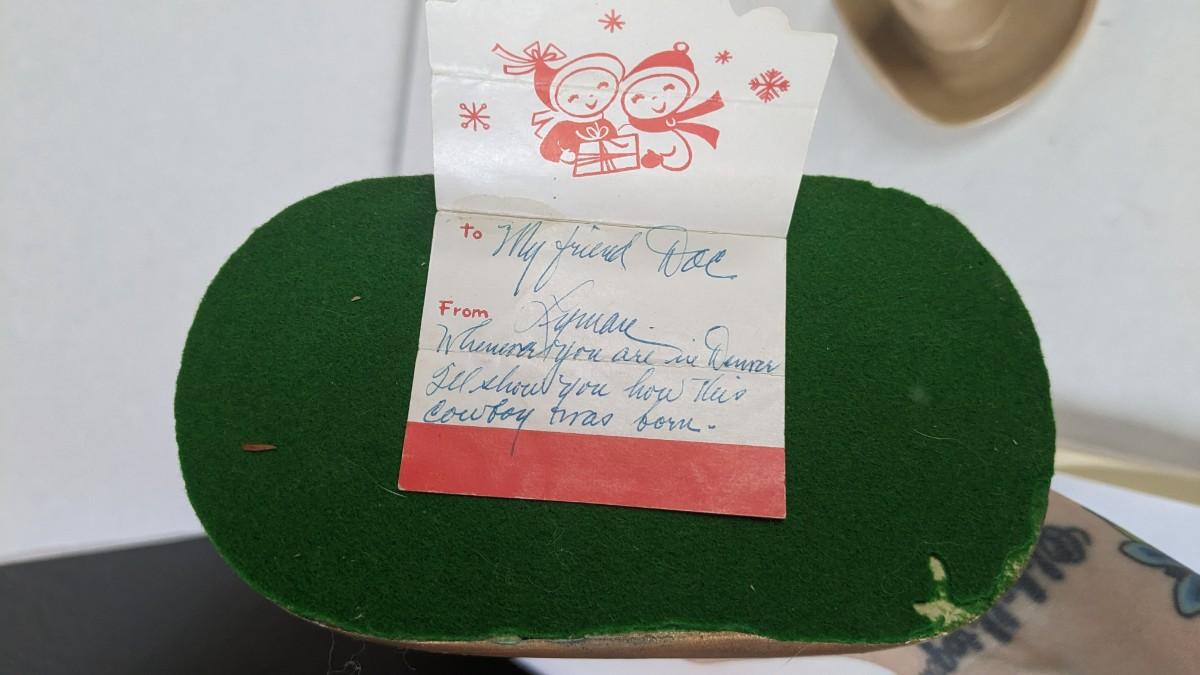 To My friend Doc
From Lyman.
Whenever you are in Denver
I'll show you how this
Cowboy was born.